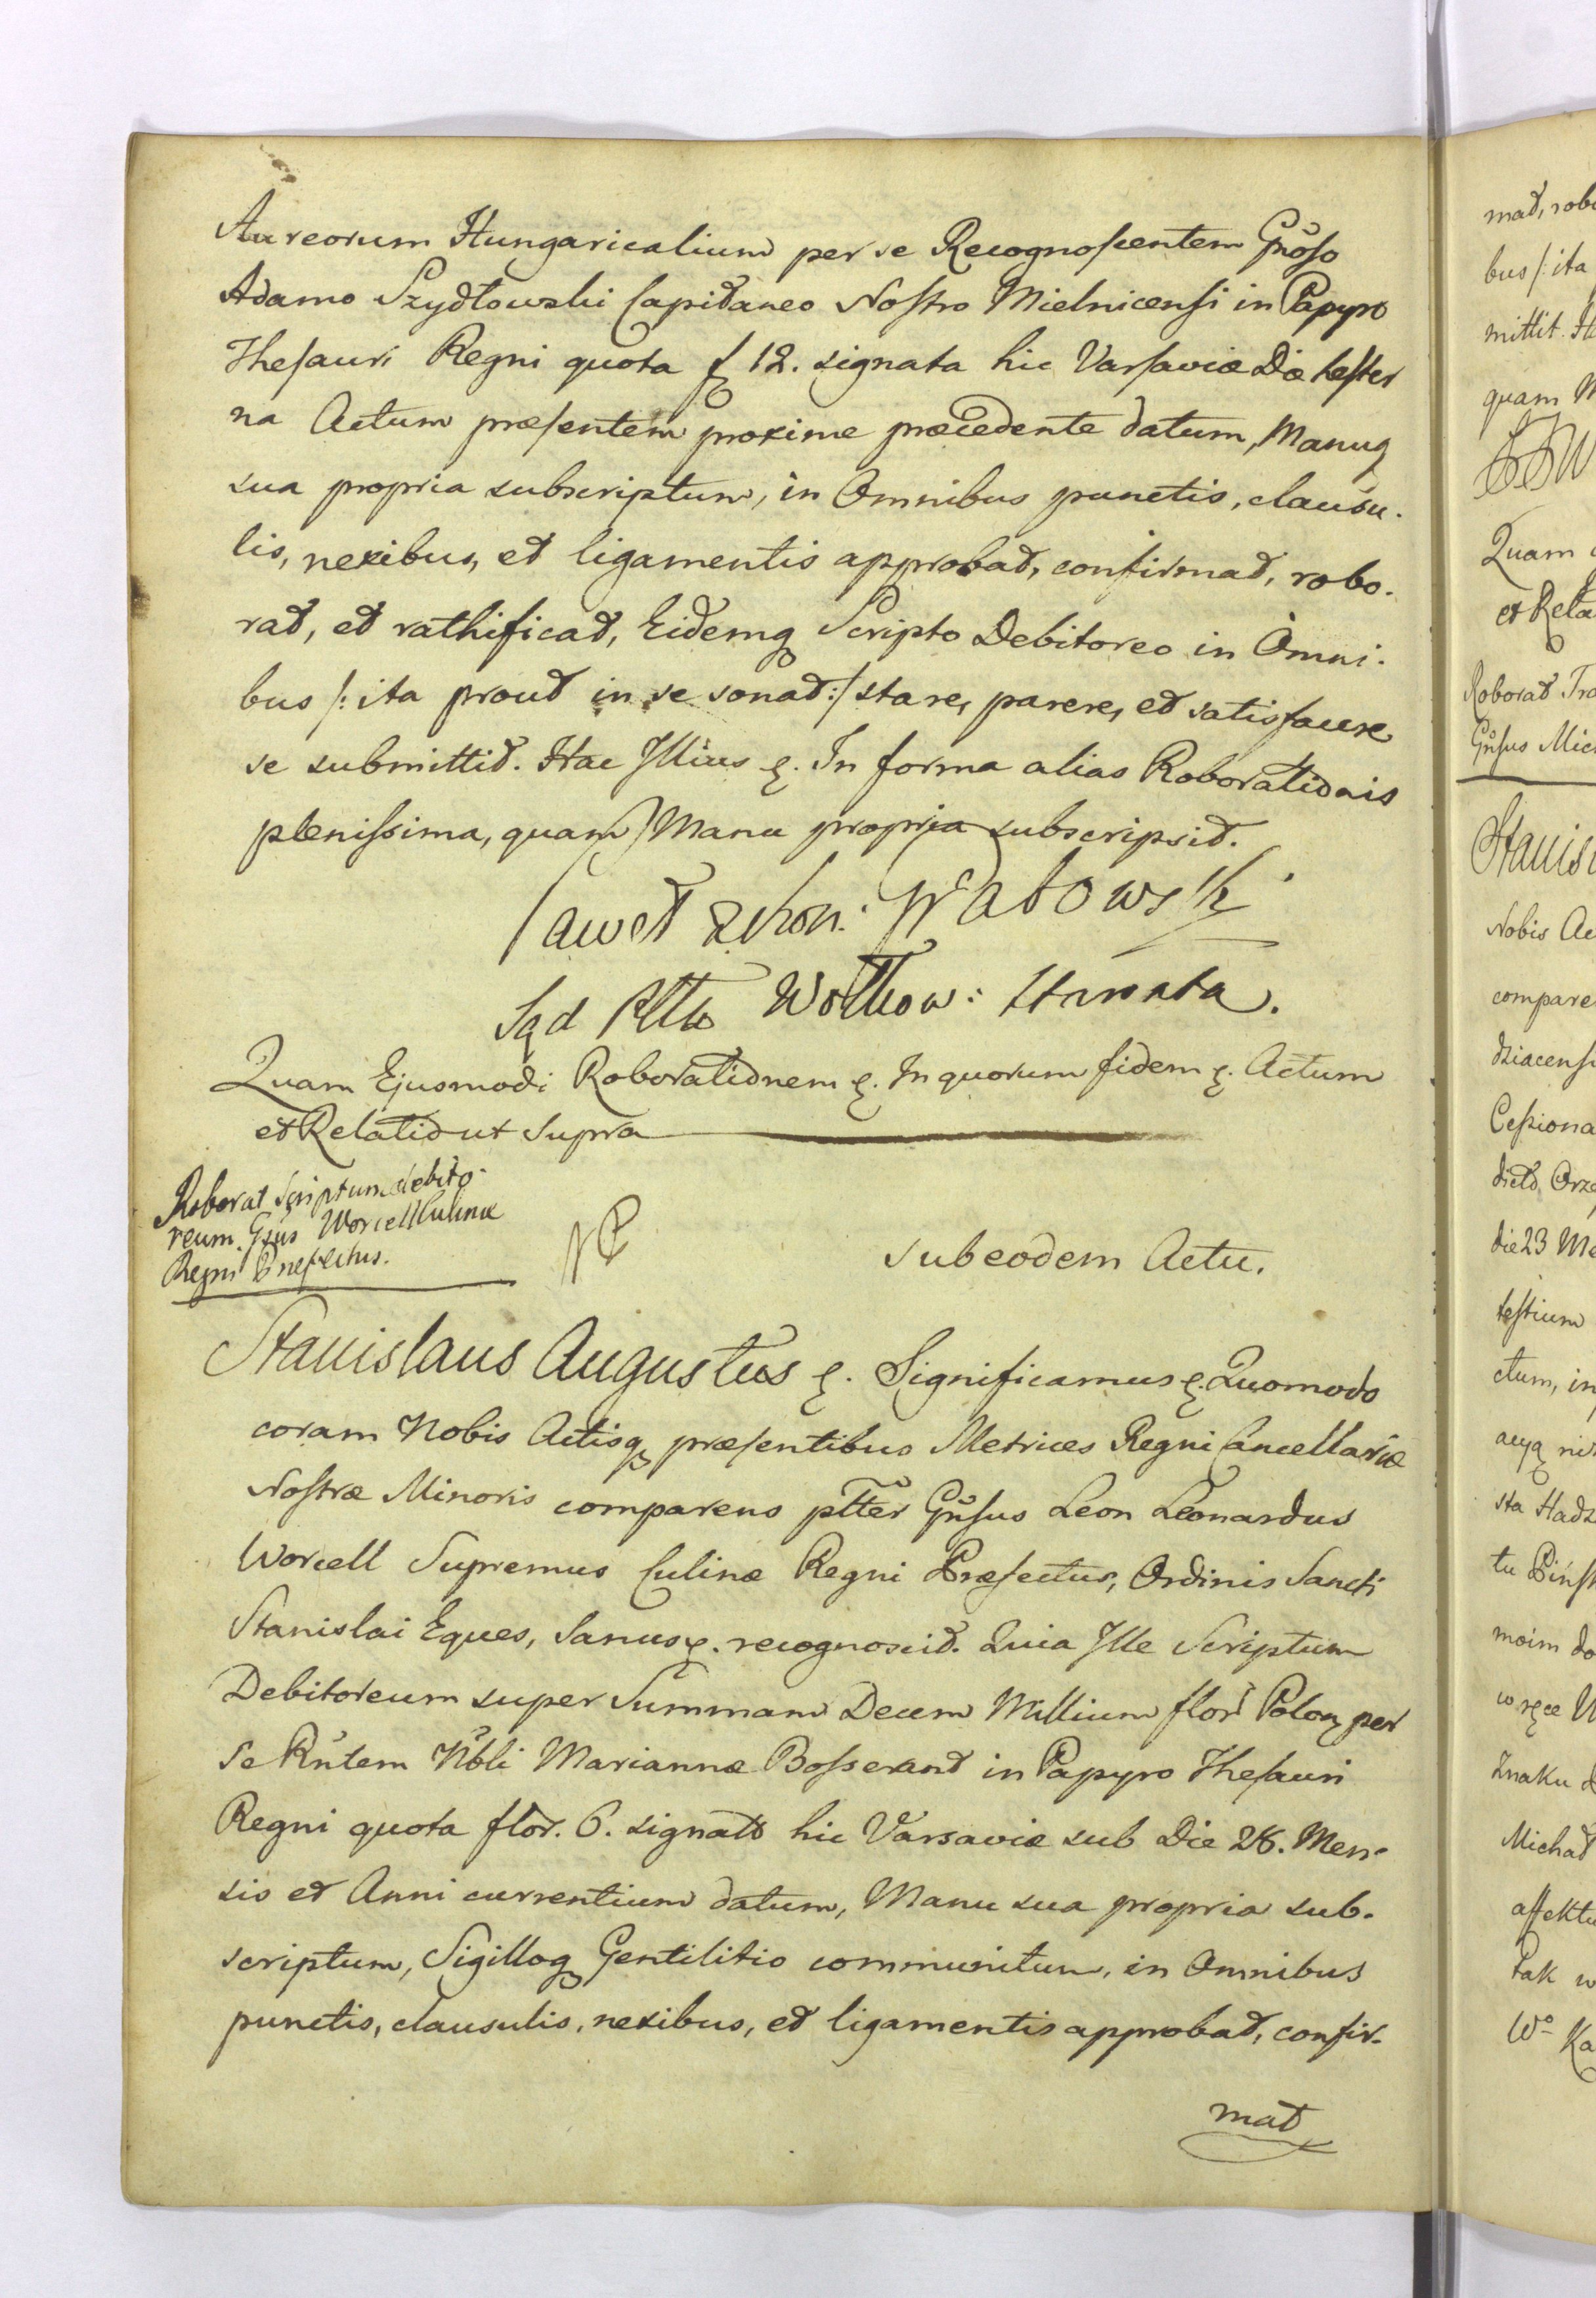 Aureorum Hungaricalium per se Recognoscentem Gnoso
Adamo Szydłowski Capitaneo Nostro Mielnicensi in Papyro
Thesauri Regni quota f 12. signata hic Varsaviæ Die hester
na Actum præsentem proxime præcedente datum, Manuq
sua propria subscriptum, in Omnibus punctis, clausu.
lis, nexibus, et ligamentis approbat, confirmat, robo.
rat, et rathificat, Eidemq Scripto Debitoreo in Omni.
bus /: ita prout in se sonat :/ stare, parere, et satisfacere
se submittit. Hac Illius &. In forma alias Roborationis
plenissima, quam Manu propria subscripsit.
Quam Ejusmodi Roborationem &. In quorum fidem &. Actum
et Relatio ut Supra
Roborat Scriptum debito-
reum Gsus Worcell Culinæ
Regni Præfectus.
sub eodem Actu.
Stanislaus Augustus &. Significamus &. Quomodo
coram Nobis Actisq præsentibus Metrices Regni Cancellariæ
Nostræ Minoris comparens pltter Gnsus Leon Leonardus
Worcell Supremus Culinæ Regni Præfectus, Ordinis Sancti
Stanislai Eques, Sanus &. recognoscit. Quia Ille Scriptum
Debitoreum super Summam Decem Millium flor Polon per
se Rntem Nbli Mariannæ Bosserand in Papyro Thesauri
Regni quota flor. 6. signato hic Varsaviæ sub Die 28. Men-
sis et Anni currentium datum, Manu sua propria sub.
scriptum, Sigilloq Gentilitio communitum, in Omnibus
punctis, clausulis, nexibus, et ligamentis approbat, confir-
mat
mat, robo
bus /: ita
mittit. Ha
quam M
Quam
et Rela
Roborat Tra
Gnsus Mic
Stanis
Nobis Ac
compare
dziacensi
Cessiona
die 23 Me
testium
ctum, in
sta Hadz
tu Pińsk
moim do
w ręce W
Znaku d
Michał
affektu
tak w
Wo Ka